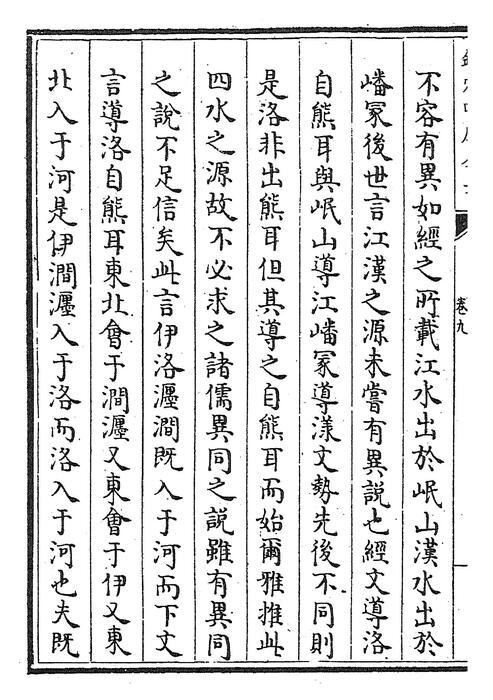 卷九
不容有異如經之所載江水出於岷山漢水出於
嶓冢後世言江漢之源未嘗有異說也經文導洛
自熊耳與岷山導江嶓冢導漾文勢先後不同則
是洛非出熊耳但其導之自熊耳而始爾雅推此
四水之源故不必求之諸儒異同之說雖有異同
之說不足信矣此言伊洛瀍澗既入于河而下文
言導洛自熊耳東北會于澗瀍又東會于伊又東
北入于河是伊澗瀍入于洛而洛入于河也夫既